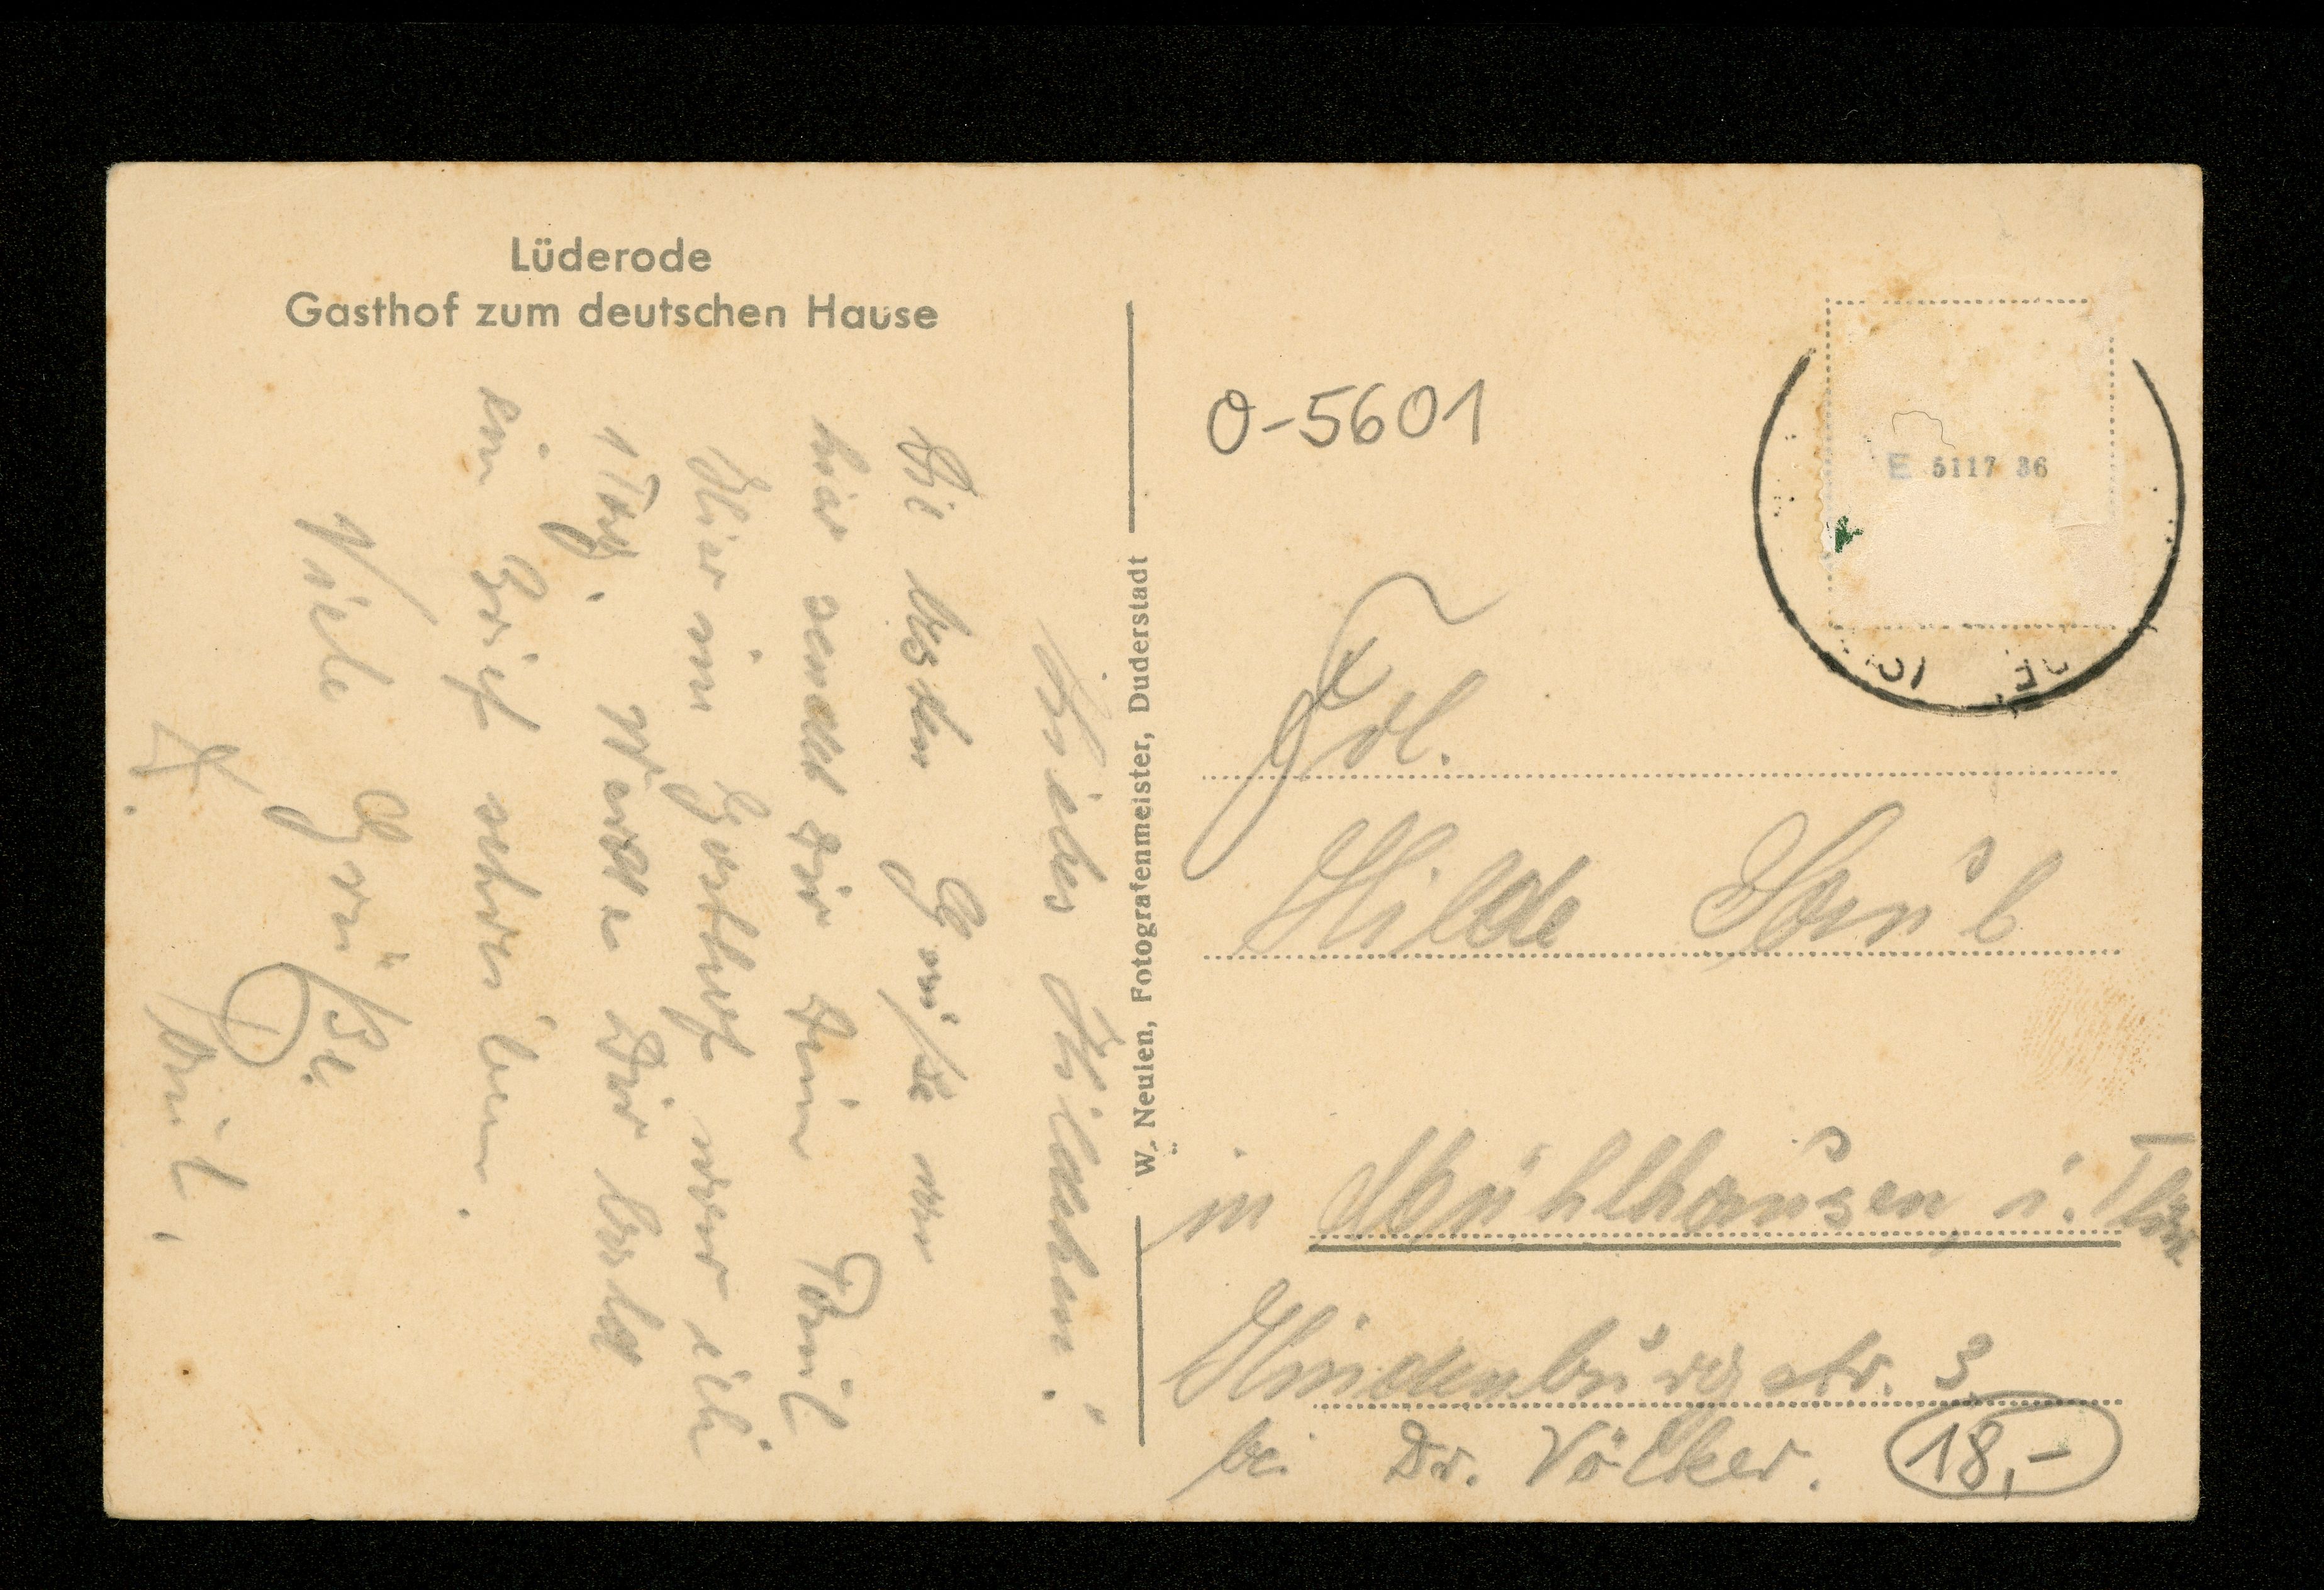 Lüderode
Gasthof zum deutschen Hause
Liebes Hildchen!
Die besten Grüße von
hier sendet Dir Dein Paul
Hier im Gasthof war ich
1 Tag. Werde Dir bald
ein Brief schreiben.
Viele Grüße
Paul.
W. Neulen, Fotografenmeister, Duderstadt
O-5601
E 5117 36
Frl.
Hilde
in Mühlhausen i. Thür
Hindenburgstr. 3
bei Dr. Völker.
18,-